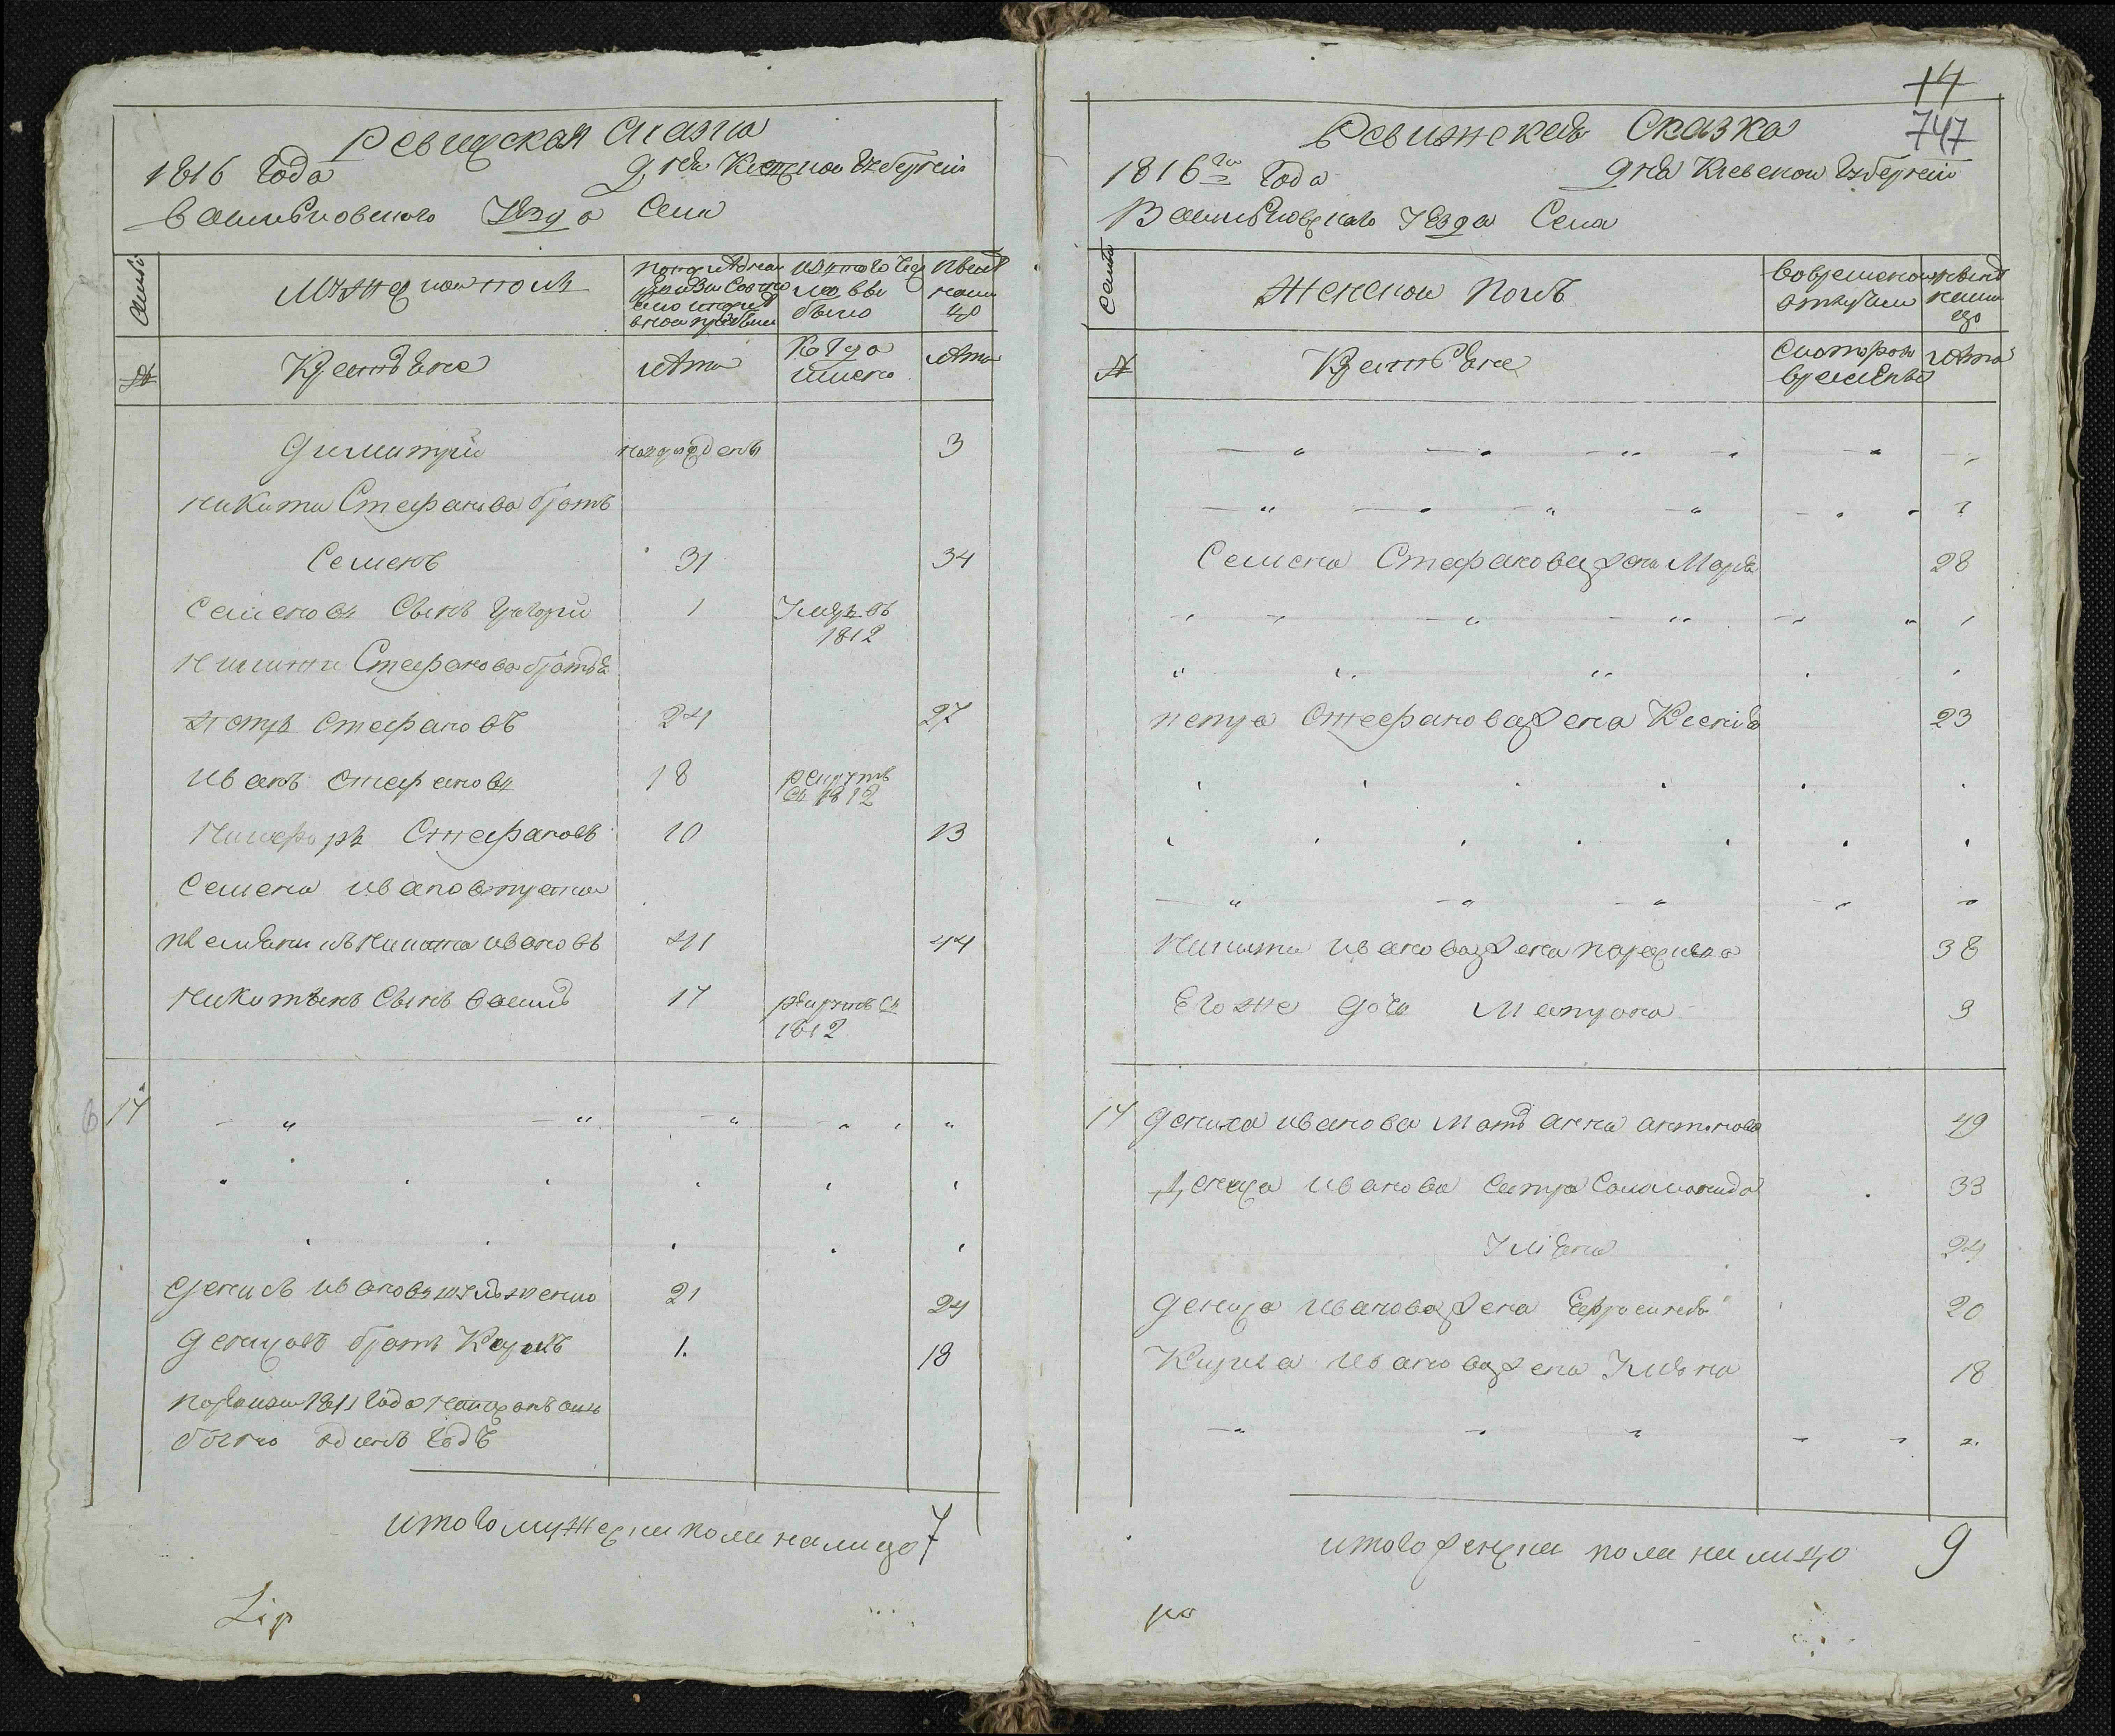 Ревизская Сказка
1816 Года дня Киевской Губернии
Васильковского Уезда Села
Семьи
Мужеской полъ
Изтого Числа выбыло
Ныне налицо
№
Крестьяне
Лета
Когда именно
Лета
Димитрий новорожденъ 3
Никиты Стефанова братъ
Семенъ 31 34
Семеновъ Сынъ Григорий 1 Умре въ 1812
Никиты Стефанова братья
Петръ Стефановъ 24 27
Иванъ Стефановъ 18 рекрутъ въ 1812
Никифоръ Стефановъ 10 13
Семена Иванова
племянникъ Никита Ивановъ 41 44
Никитынъ Сынъ Василь 17 рекрутъ въ 1812
14
Денисъ Ивановъ 21 24
Денисовъ братъ Карпъ 1. 18
по ревизии 1811 Года
одинъ Годъ
итого мужеска пола налицо 7
Lip
14
747
Ревижская Сказка
1816го Года дня Киевской Губернии
Васильковского Уезда Села
Семьи
Женской полъ
Во временной отлучки
Ныне налицо
№
Крестьяне
Скоторого времени
Лета
Семена Стефанова жена Марья 28
Петра Стефанова жена Ксения 23
Никиты Иванова жена Параскева 38
Его же дочь Матрона 3
14 Дениса Иванова Мать Анна Антонова 49
Дениса Иванова Сестра Соломонида 33
Ульяна 24
Дениса Иванова жена Ефросинья 20
Кирила Иванова жена Ульяна 18
итого женска пола на лицо 9